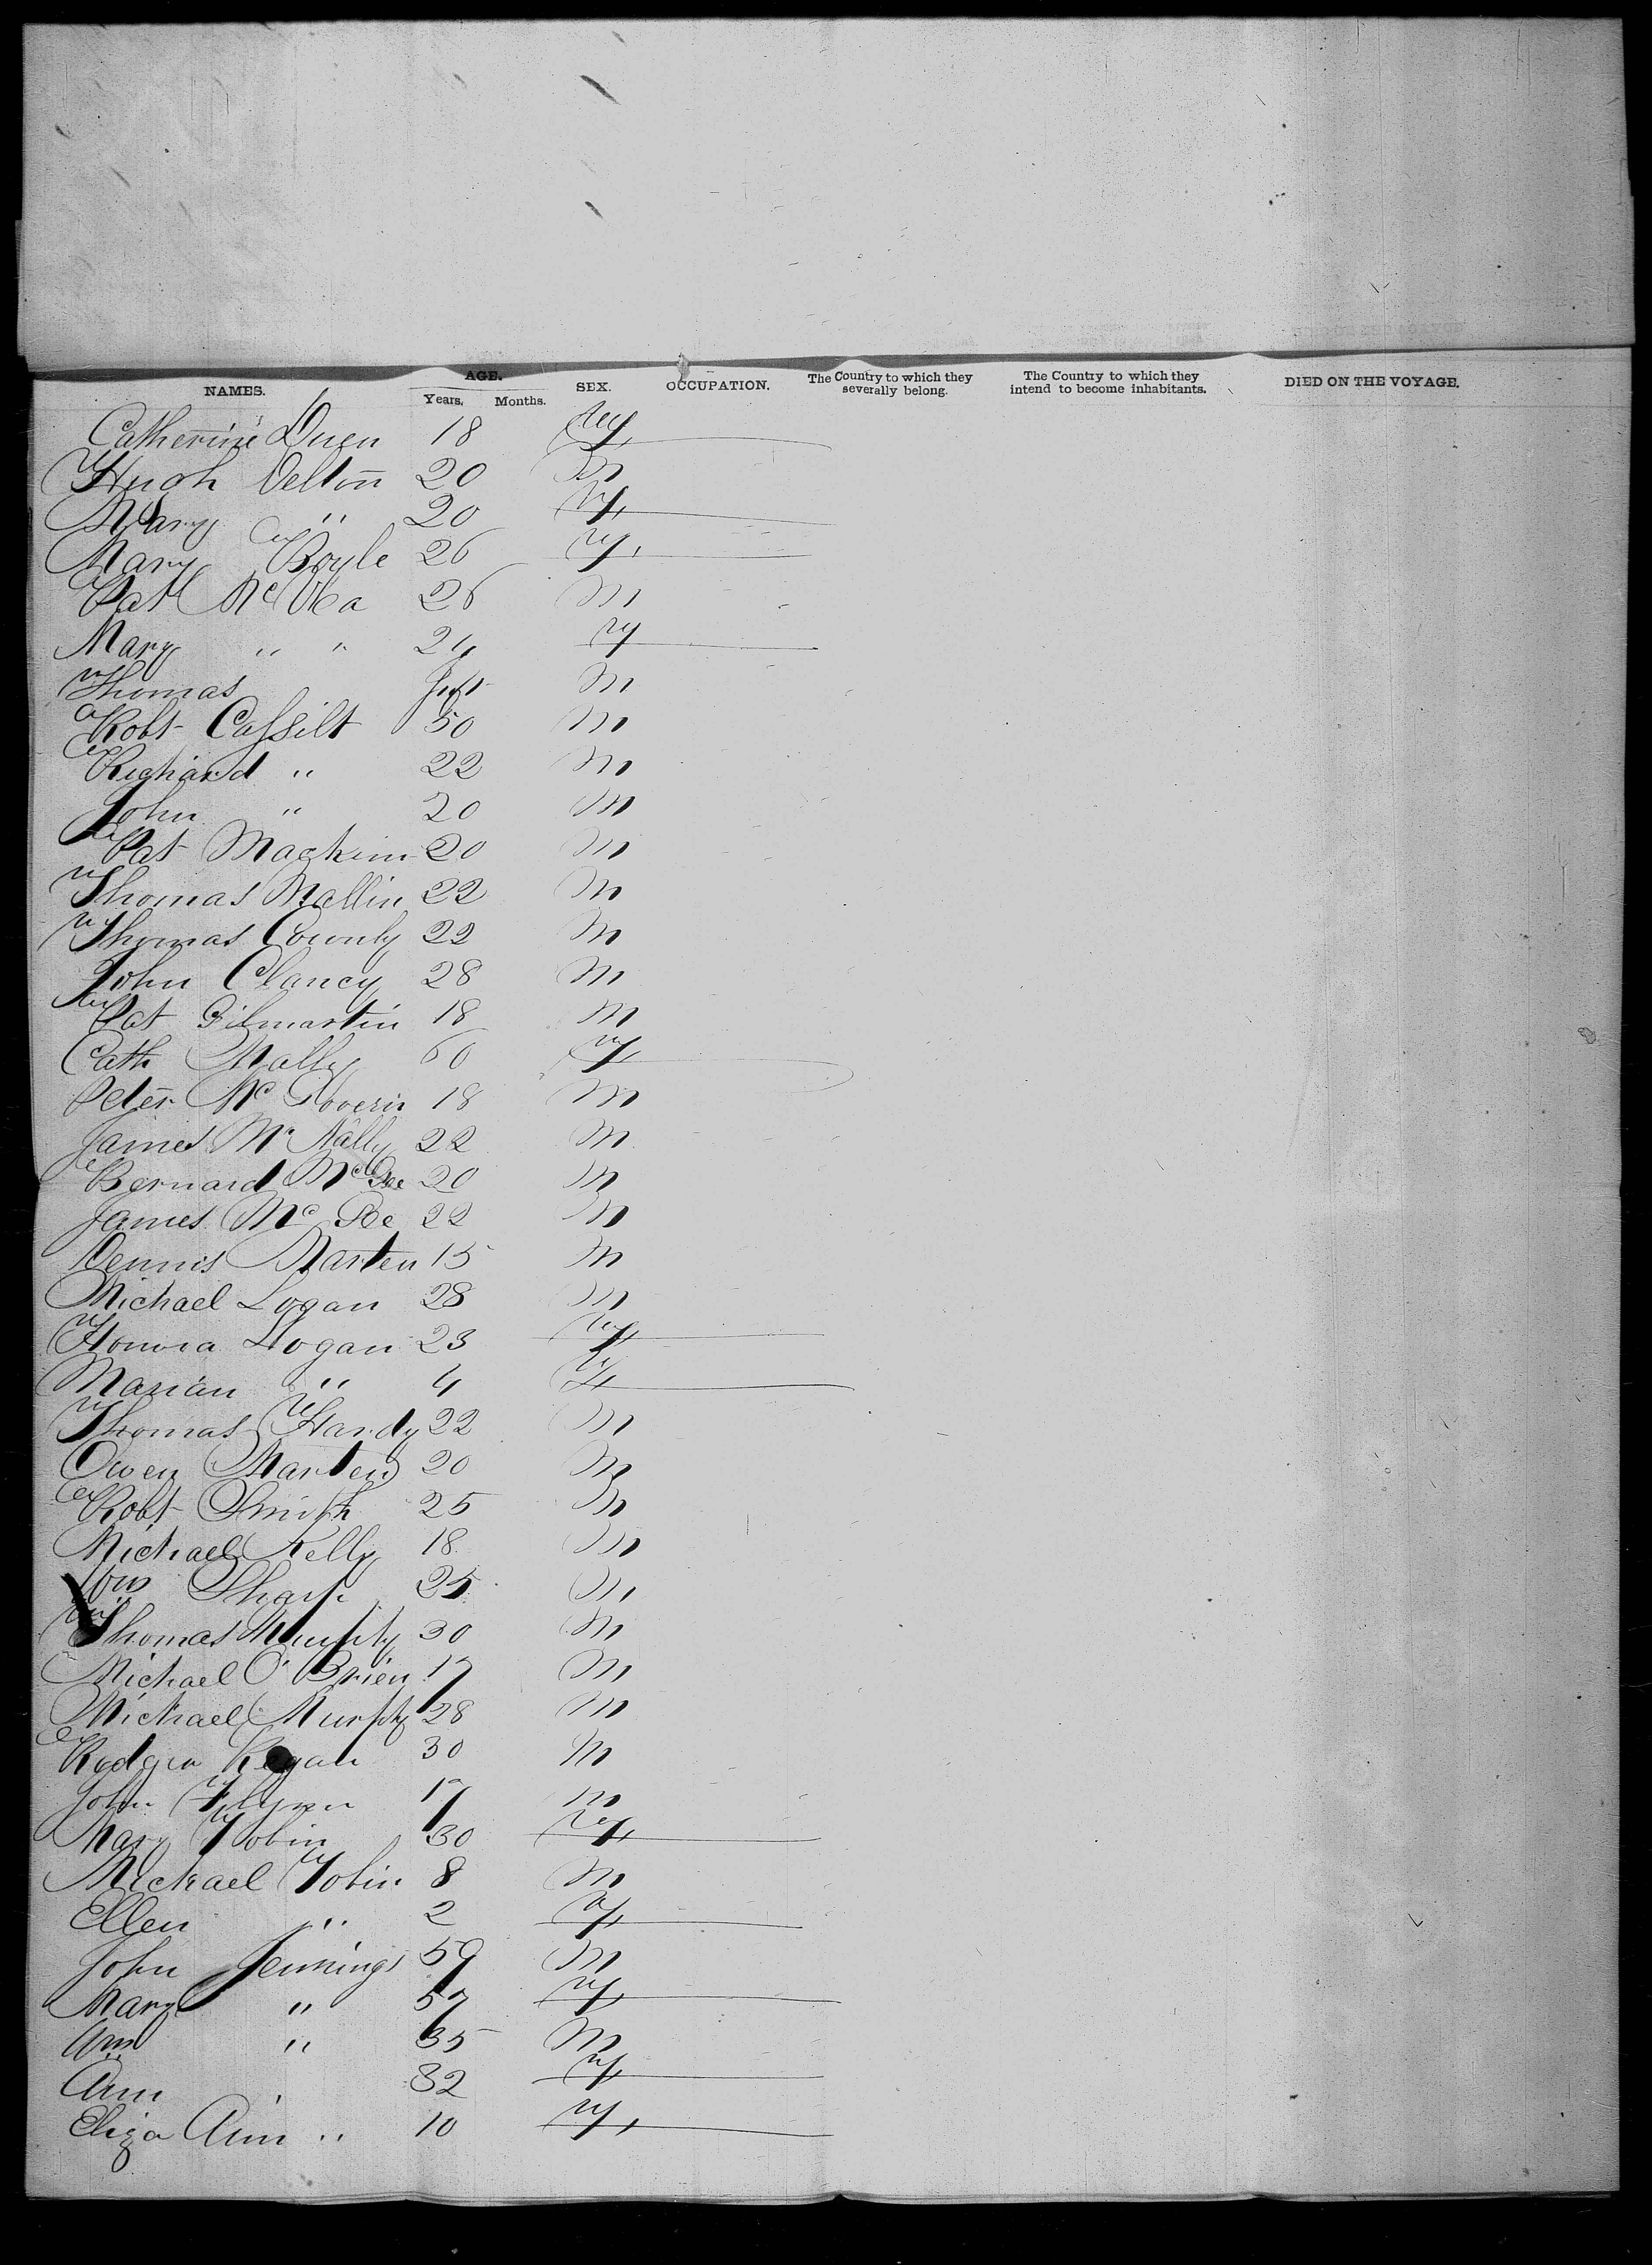 NAMES. AGE. SEX. OCCUPATION. The Country to which they severally belong. The Country to which they intend to become inhabitants. DIED ON THE VOYAGE.
Years. Months.
Catherine 18 f
Hugh Delton 20 m
Mary " 20 f
Mary Boyle 26 f
Pat 26 m
Mary " " 24 f
Thomas Inft m
Robt Cassilt 50 m
Richard " 22 m
John " 20 m
Pat Mackim 20 m
Thomas Mallin 22 m
Thomas County 22 m
John Clancy 28 m
Pat Gilmartin 18 m
Cath Mally 60 f
Peter McGovern 18 m
James McNally 22 m
Bernard McGee 20 m
James McGee 22 m
Dennis Marten 15 m
Michael Logan 28 m
Honora Logan 23 f
Marian " 4 f
Thomas Hardy 22 m
Owen Marten 20 m
Robt Smith 25 m
Michael Kelly 18 m
Wm Sharp 25 m
Thomas Murphy 30 m
Michael O'Brien 17 m
Michael Murphy 28 m
Rodger Regan 30 m
John Flynn 17 m
Mary Tobin 30 f
Michael Tobin 8 m
Ellen " 2 f
John Jennings 59 m
Mary " 57 f
Wm " 35 m
Ann 32 f
Eliza Ann " 10 f